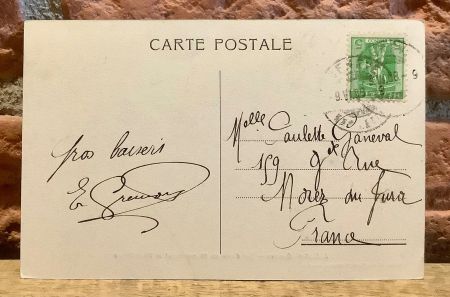 CARTE POSTALE
gros baisers
Melle Paulette Janeval
159 Gde Rue
Morez du Jura
France